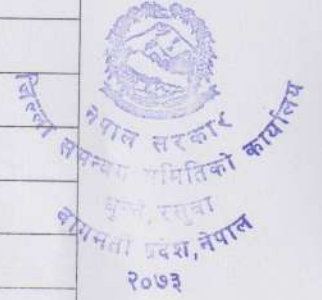 नेपाल सरकार
जिल्ला समन्वय समितिको कार्यालय
धुन्चे, रसुवा
बागमती प्रदेश, नेपाल
२०७३